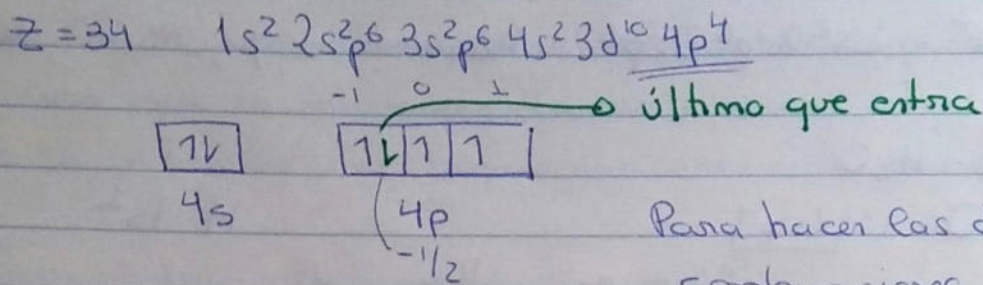 Z = 34 1s² 2s²p⁶ 3s²p⁶ 4s² 3d¹⁰ 4p⁴
-1 0 1
último que entra
1↓ 1↓ 1 1
4s 4p
-1/2
Para hacer las